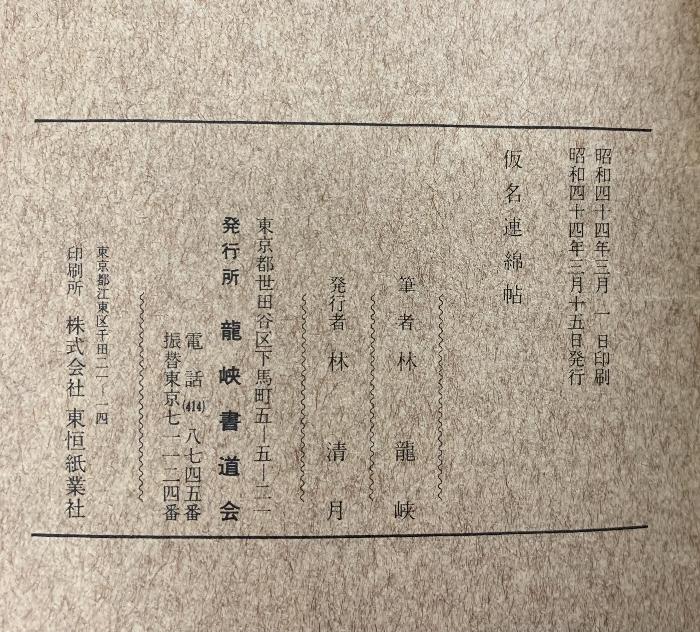 昭和四十四年三月 一 日印刷
昭和四十四年三月十五日発行
仮名連綿帖
筆者 林 龍峡
発行者 林 清月
東京都世田谷区下馬町五―五―二一
発行所 龍峡書道会
電話(414)八七四五番
振替東京七一一二四番
東京都江東区千田二一―一四
印刷所 株式会社 東恒紙業社